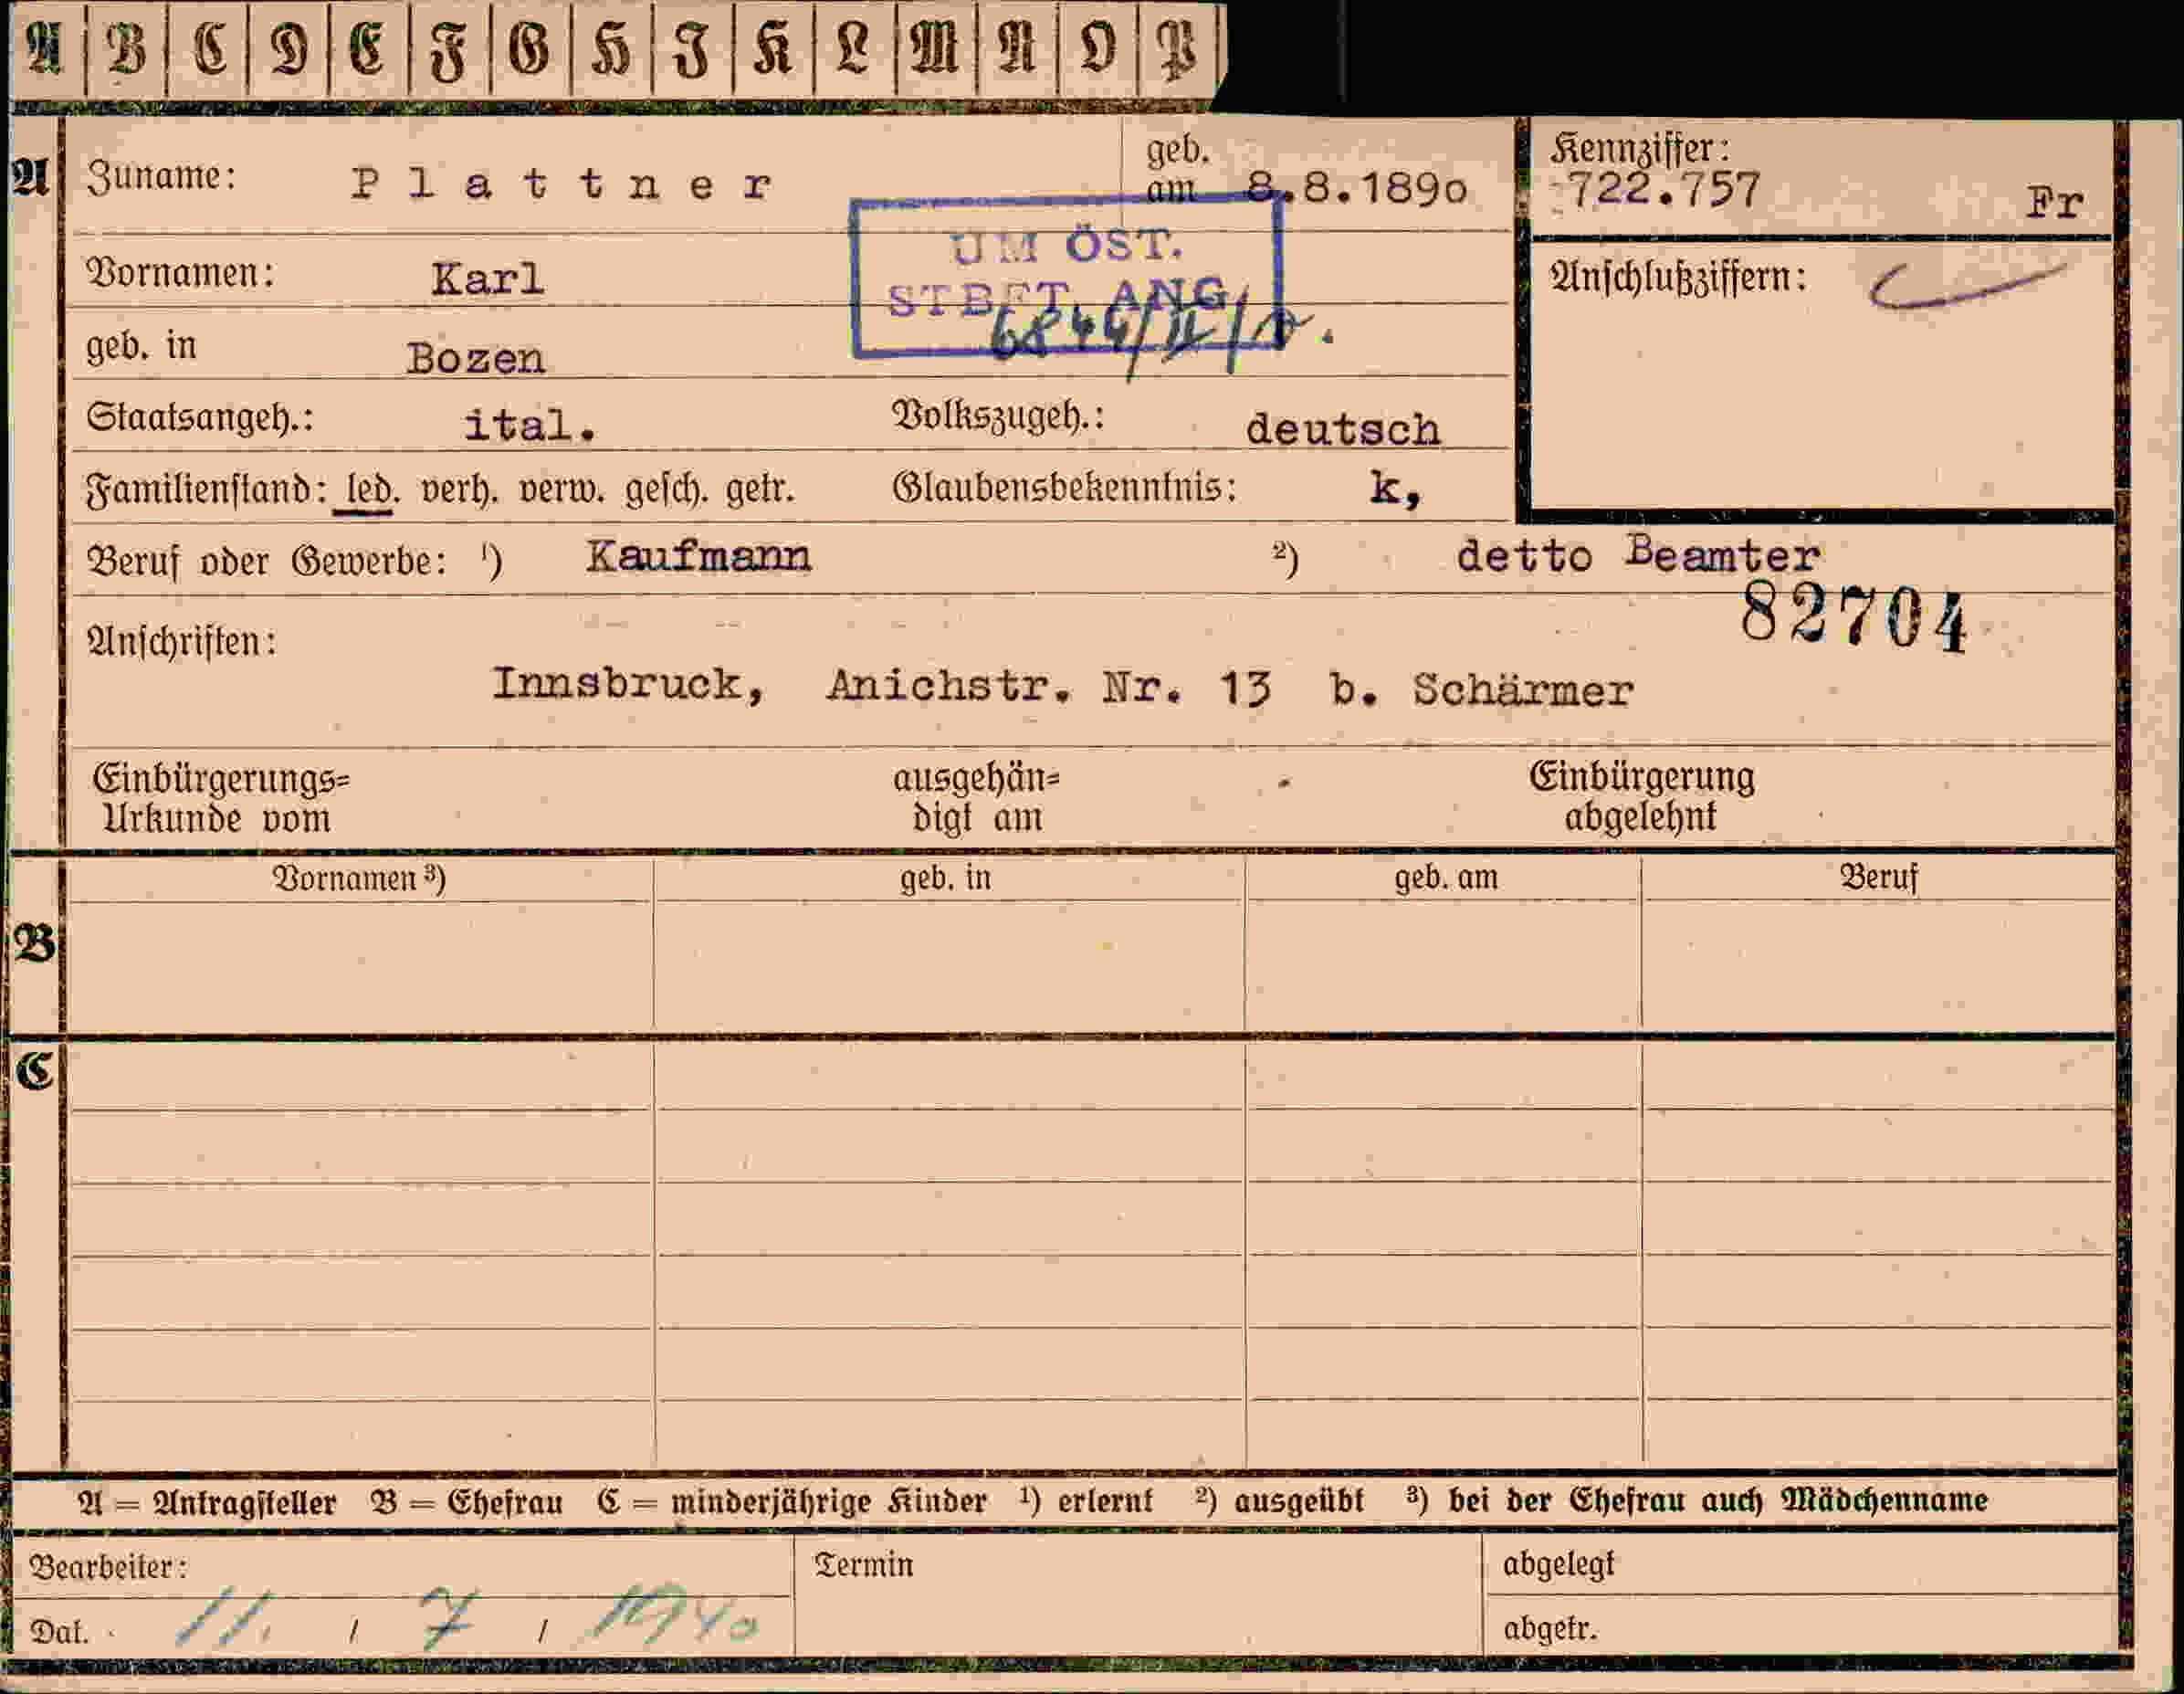 A B C D E F G H I K L M N O P
A Zuname: Plattner geb. am 8.8.1890 Kennziffer: 722.757 Fr
UM ÖST.
Vornamen: Karl Anschlußziffern:
STBET. ANG.
geb. in Bozen
Staatsangeh.: ital. Volkszugeh.: deutsch
Familienstand: led. verh. verw. gesch. getr. Glaubensbekenntnis: k,
Beruf oder Gewerbe: ¹) Kaufmann ²) detto Beamter
82704
Anschriften:
Innsbruck, Anichstr. Nr. 13 b. Schärmer
Einbürgerungs= ausgehän= Einbürgerung
Urkunde vom digt am abgelehnt
Vornamen ³) geb. in geb. am Beruf
B
C
A = Antragsteller B = Ehefrau C = minderjährige Kinder ¹) erlernt ²) ausgeübt ³) bei der Ehefrau auch Mädchenname
Bearbeiter: Termin abgelegt
Dat. 11. / 7 / 1940 abgetr.